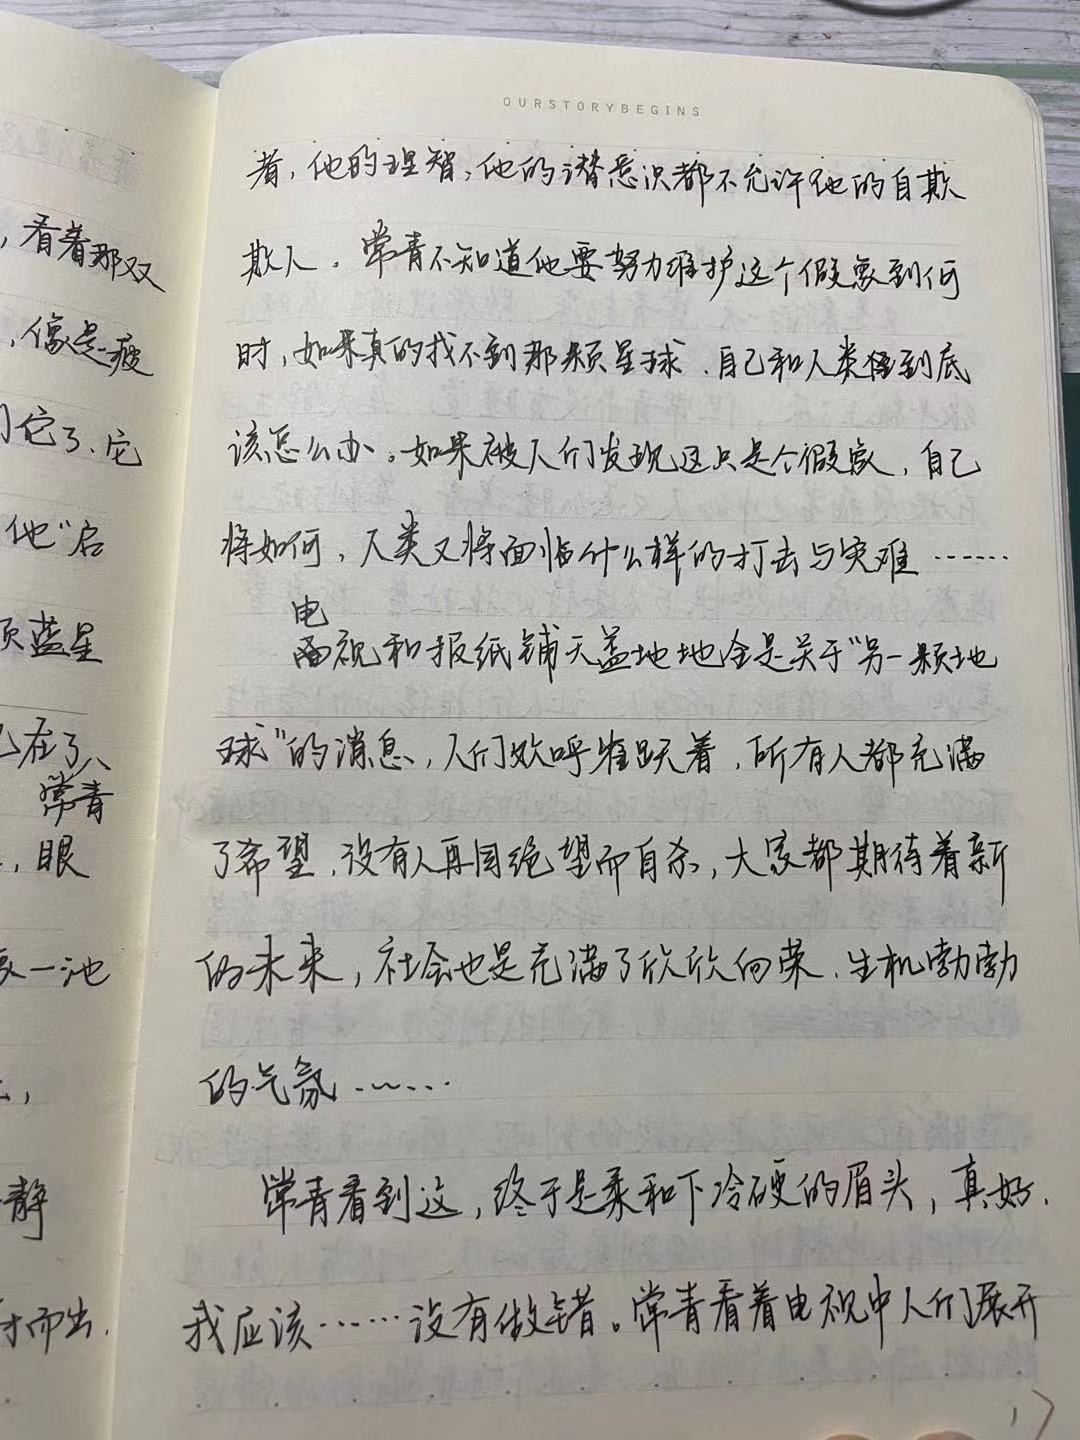 ，看着那双
，像是疲
们它了、它
他”启
颗蓝星
已在了、
常青
，眼
一池
静
而出.
OURSTORYBEGINS
者，他的理智，他的潜意识都不允许他的自欺
欺人。常青不知道他要努力维护这个假象到何
时，如果真的找不到那颗星球、自己和人类到底
该怎么办。如果被人们发现这只是个假象，自己
将如何，人类又将面临什么样的打击与灾难……
电
视和报纸铺天盖地地全是关于“另一颗地
球”的消息，人们欢呼雀跃着，所有人都充满
了希望，没有人再因绝望而自杀，大家都期待着新
的未来，社会也是充满了欣欣向荣、生机勃勃
的气氛……
常青看到这，终于是柔和下冷硬的眉头，真好.
我应该……没有做错。常青看着电视中人们展开